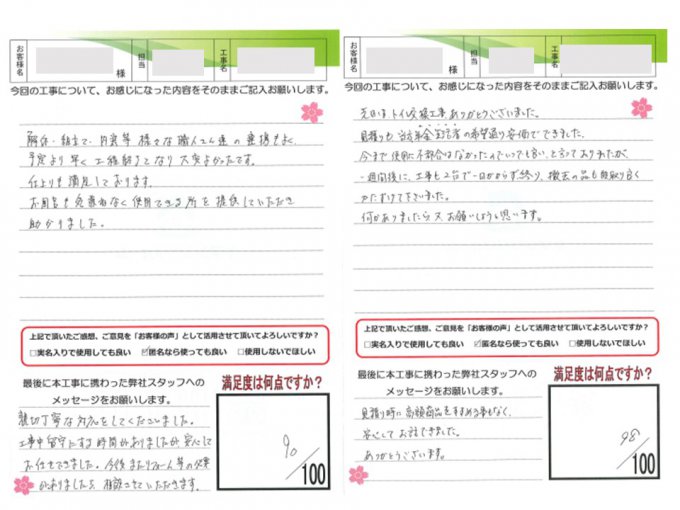 お客様名
様
担当
工事名
今回の工事について、お感じになった内容をそのままご記入お願いします。
解体・組立て・内装等 様々な職人さん達の連携もよく、
予定より早く工程終了となり大変よかったです。
仕上りも満足しております。
お風呂も気兼ねなく使用できる所を提供していただき
助かりました。
上記で頂いたご感想、ご意見を「お客様の声」として活用させて頂いてよろしいですか？
□実名入りで使用しても良い ☑匿名なら使っても良い □使用しないでほしい
最後に本工事に携わった弊社スタッフへの
メッセージをお願いします。
親切丁寧な対応をしてくださいました。
工事中留守にする時間がありましたが安心して
お任せできました。今後またリフォーム等の必要
がありましたら相談させていただきます。
満足度は何点ですか？
90/100
お客様名
様
担当
工事名
今回の工事について、お感じになった内容をそのままご記入お願いします。
先日は、トイレ交換工事ありがとうございました。
見積りも 希望通り安価でできました。
今まで使用に不都合はなかったのでいつでも良いと言っておりましたが、
一週間後に、工事も2台で一日かからず終り、撤去の品も段取り良く
かたずけて下さいました。
何かありましたら又お願いしようと思います。
上記で頂いたご感想、ご意見を「お客様の声」として活用させて頂いてよろしいですか？
□実名入りで使用しても良い ☑匿名なら使っても良い □使用しないでほしい
最後に本工事に携わった弊社スタッフへの
メッセージをお願いします。
見積り時に高額商品をすすめる事もなく、
安心してお話できました。
ありがとうございます。
満足度は何点ですか？
98/100